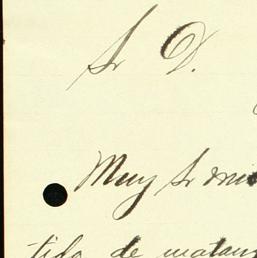 Sr D.
Muy Sr mio
tido de matan